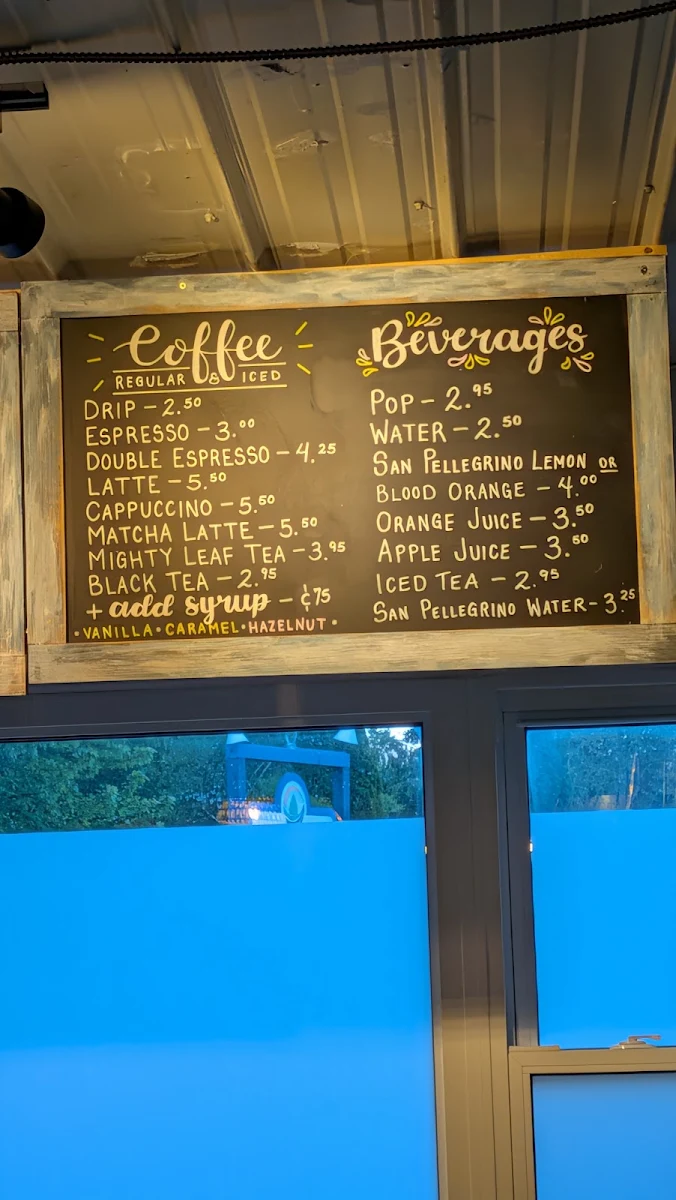 Coffee
REGULAR & ICED
DRIP - 2.50
ESPRESSO - 3.00
DOUBLE ESPRESSO - 4.25
LATTE - 5.50
CAPPUCCINO - 5.50
MATCHA LATTE - 5.50
MIGHTY LEAF TEA - 3.95
BLACK TEA - 2.95
+ add syrup - ¢75
• VANILLA • CARAMEL • HAZELNUT •
Beverages
POP - 2.95
WATER - 2.50
SAN PELLEGRINO LEMON OR
BLOOD ORANGE - 4.00
ORANGE JUICE - 3.50
APPLE JUICE - 3.50
ICED TEA - 2.95
SAN PELLEGRINO WATER - 3.25